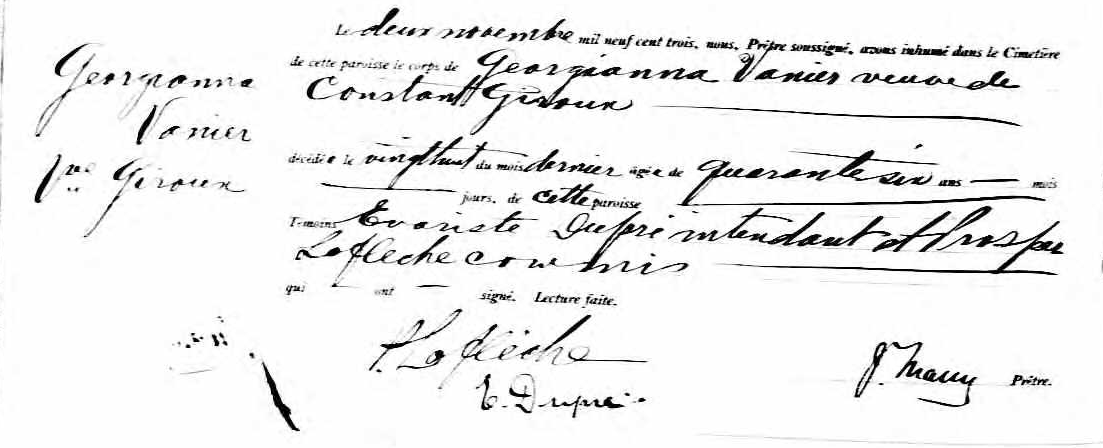 Georgianna
Vanier
Vve Giroux
Le deux novembre mil neuf cent trois, nous, Prêtre soussigné, avons inhumé dans le Cimetière
de cette paroisse le corps de Georgianna Vanier veuve de
Constant Giroux
décédée le vingt huit du mois dernier âgée de quarante six ans — mois
jours, de cette paroisse
Témoins Evariste Dupré intendant et Prosper
Laflèche commis
qui — ont — signé. Lecture faite.
P. Laflèche
E. Dupré
Prêtre.